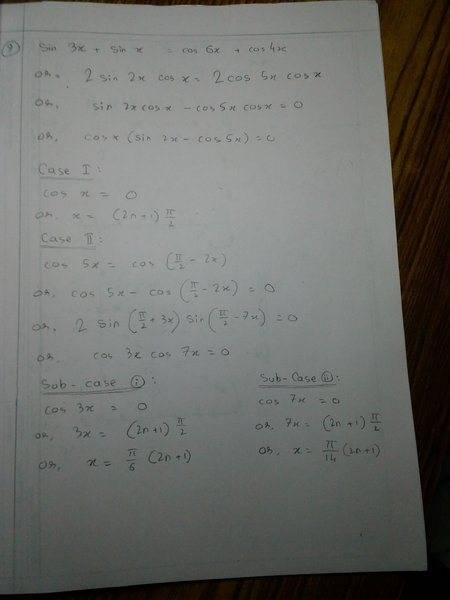 9 Sin 3x + Sin x = cos 6x + cos 4x
or, 2 sin 2x cos x = 2 cos 5x cos x
or, sin 2x cos x - cos 5x cos x = 0
or, cos x (sin 2x - cos 5x) = 0
Case I:
cos x = 0
or. x = (2n+1) π/2
Case II:
cos 5x = cos (π/2 - 2x)
or, cos 5x - cos (π/2 - 2x) = 0
or, 2 sin (π/2 + 3x) sin (π/2 - 7x) = 0
or. cos 3x cos 7x = 0
Sub-case (i):
cos 3x = 0
or, 3x = (2n+1) π/2
or, x = π/6 (2n+1)
Sub-Case (ii):
cos 7x = 0
or. 7x = (2n+1) π/2
or. x = π/14 (2n+1)